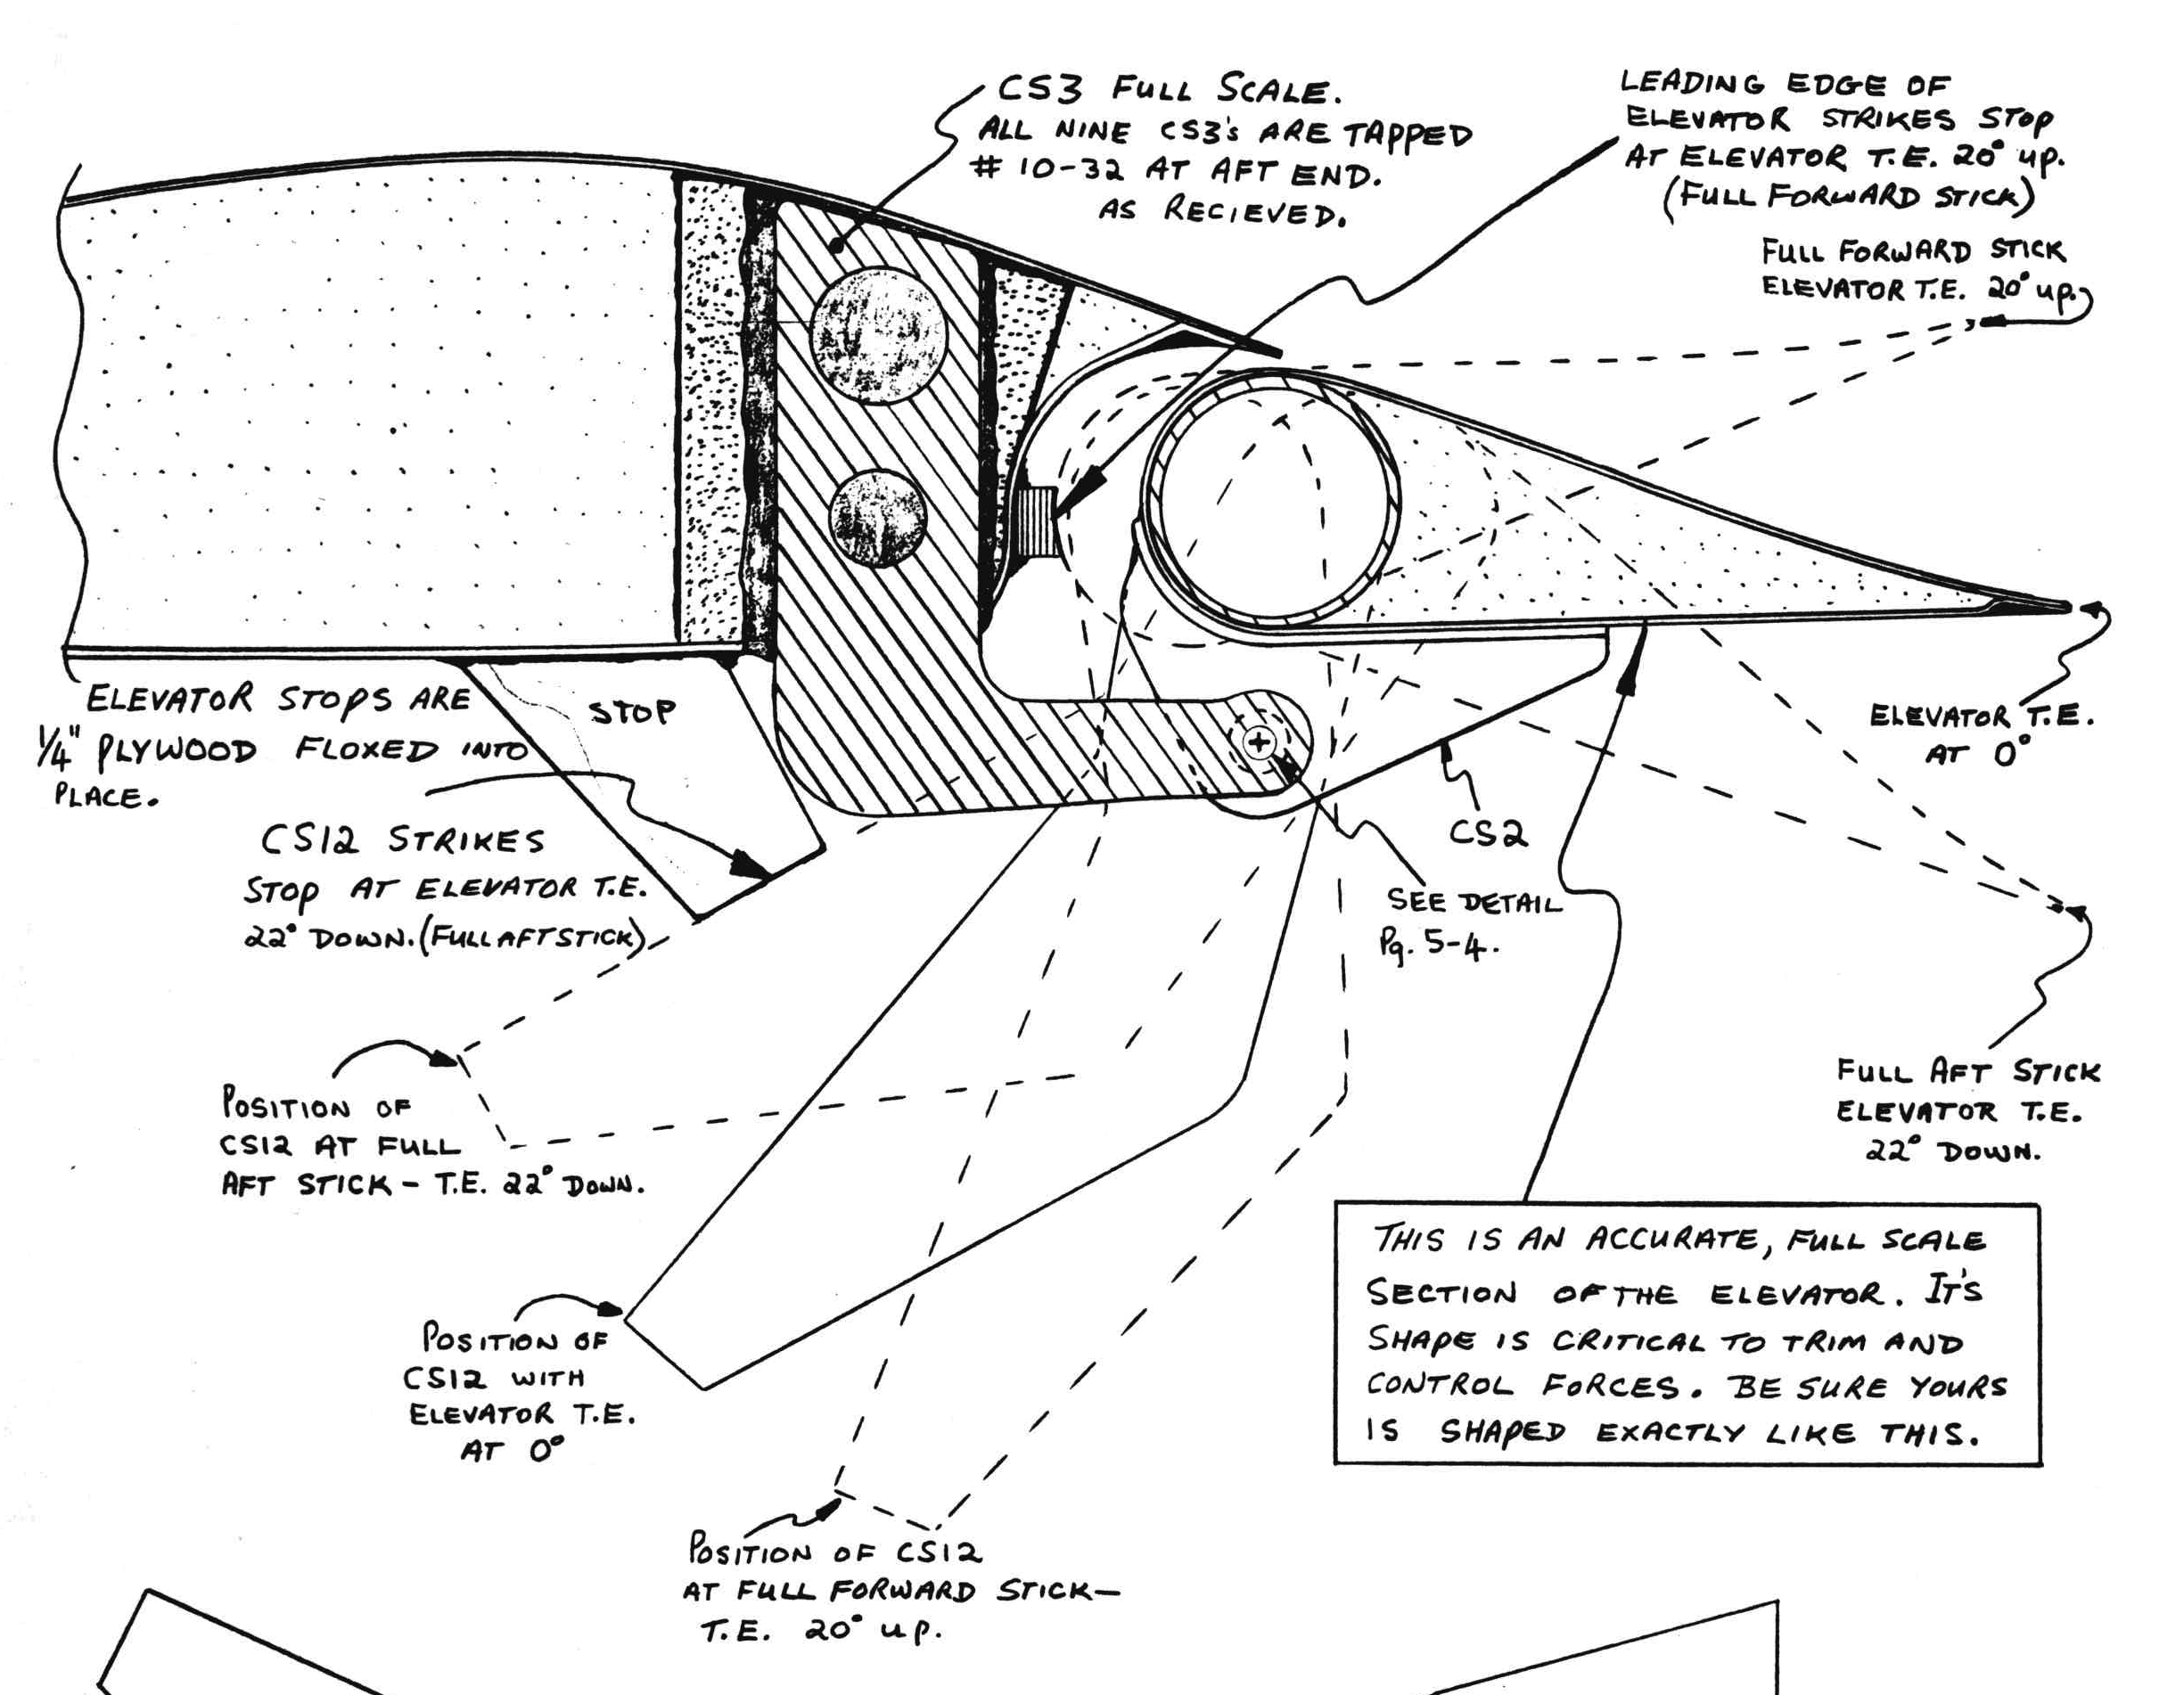 CS3 FULL SCALE.
ALL NINE CS3's ARE TAPPED
# 10-32 AT AFT END.
AS RECIEVED.
LEADING EDGE OF
ELEVATOR STRIKES STOP
AT ELEVATOR T.E. 20° UP.
(FULL FORWARD STICK)
FULL FORWARD STICK
ELEVATOR T.E. 20° UP.
ELEVATOR STOPS ARE
1/4" PLYWOOD FLOXED INTO
PLACE.
STOP
CS12 STRIKES
STOP AT ELEVATOR T.E.
22° DOWN. (FULL AFT STICK)
ELEVATOR T.E.
AT 0°
CS2
SEE DETAIL
Pg. 5-4.
POSITION OF
CS12 AT FULL
AFT STICK - T.E. 22° DOWN.
FULL AFT STICK
ELEVATOR T.E.
22° DOWN.
POSITION OF
CS12 WITH
ELEVATOR T.E.
AT 0°
THIS IS AN ACCURATE, FULL SCALE
SECTION OF THE ELEVATOR. IT'S
SHAPE IS CRITICAL TO TRIM AND
CONTROL FORCES. BE SURE YOURS
IS SHAPED EXACTLY LIKE THIS.
POSITION OF CS12
AT FULL FORWARD STICK—
T.E. 20° UP.